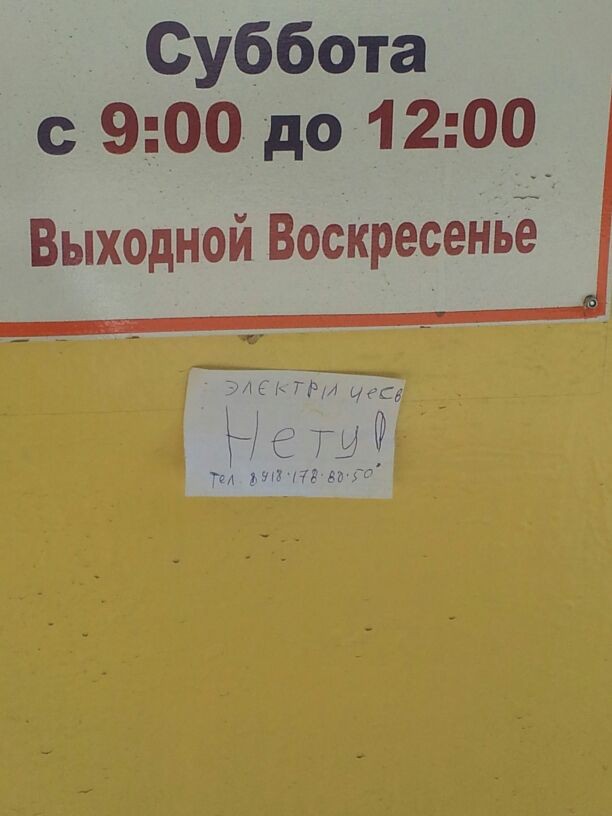 Суббота
с 9:00 до 12:00
Выходной Воскресенье
ЭЛЕКТРИЧЕСВ
Нету!
Тел. 8918·178·80·50